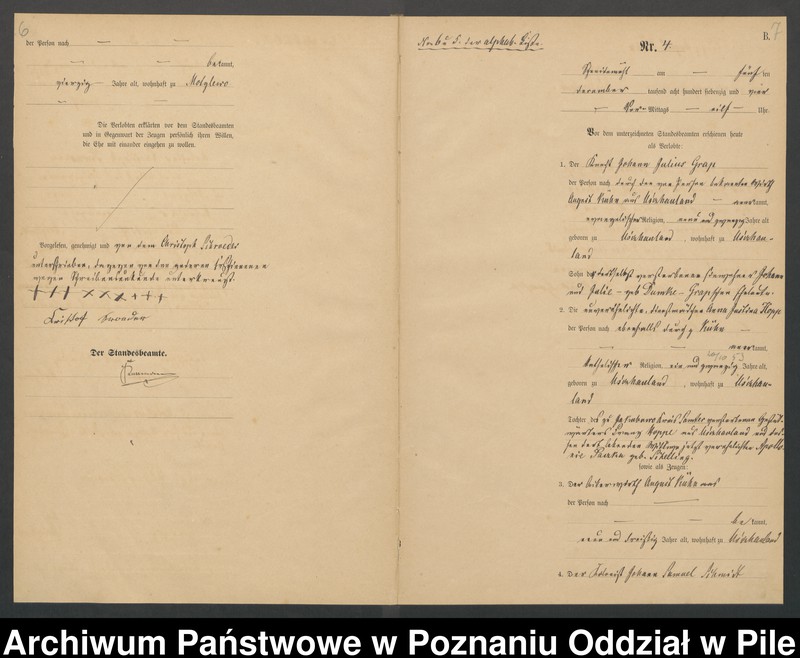 6
der Person nach
bekannt,
vierzig Jahre alt, wohnhaft zu Motylewo
Die Verlobten erklärten vor dem Standesbeamten
und in Gegenwart der Zeugen persönlich ihren Willen,
die Ehe mit einander eingehen zu wollen.
Vorgelesen, genehmigt und von dem Christoph
unterschrieben, dagegen von den anderen Erschienenen
wegen Schreibensunkunde unterkreuzt.
+++ xxx +++
Der Standesbeamte.
der alphab. Liste.
B. 7
Nr. 4.
Schneidemühl am fünften
December tausend acht hundert siebenzig und vier
Vor Mittags eilf Uhr.
Vor dem unterzeichneten Standesbeamten erschienen heute
als Verlobte:
1. Der Knecht Johann Julius Grap
der Person nach durch den von Person bekannten Wirth
August Kühn aus Uschhauland anerkannt,
evangelischer Religion, neun und zwanzig Jahre alt
geboren zu Uschhauland, wohnhaft zu Uschhau-
land
Sohn des daselbst verstorbenen Einwohner Johann
und Julie geb. Dumke-Grapschen Eheleute.
2. Die unverehelichte, Dienstmädchen Anna Justina Hoppe
der Person nach ebenfalls durch p Kühn
anerkannt,
katholischer Religion, ein und zwanzig Jahre alt,
geboren zu Uschhauland, wohnhaft zu Uschhau-
land
Tochter des zu Kreis verstorbenen
Hoppe aus Uschhauland und des-
sen dort lebenden Wittwe jetzt verehelichte
geb.
sowie als Zeugen:
3. Der August Kühn
der Person nach
bekannt,
neun und dreißig Jahre alt, wohnhaft zu Uschhauland
4. Der Kolonist Johann Samuel Schmidt
Archiwum Państwowe w Poznaniu Oddział w Pile